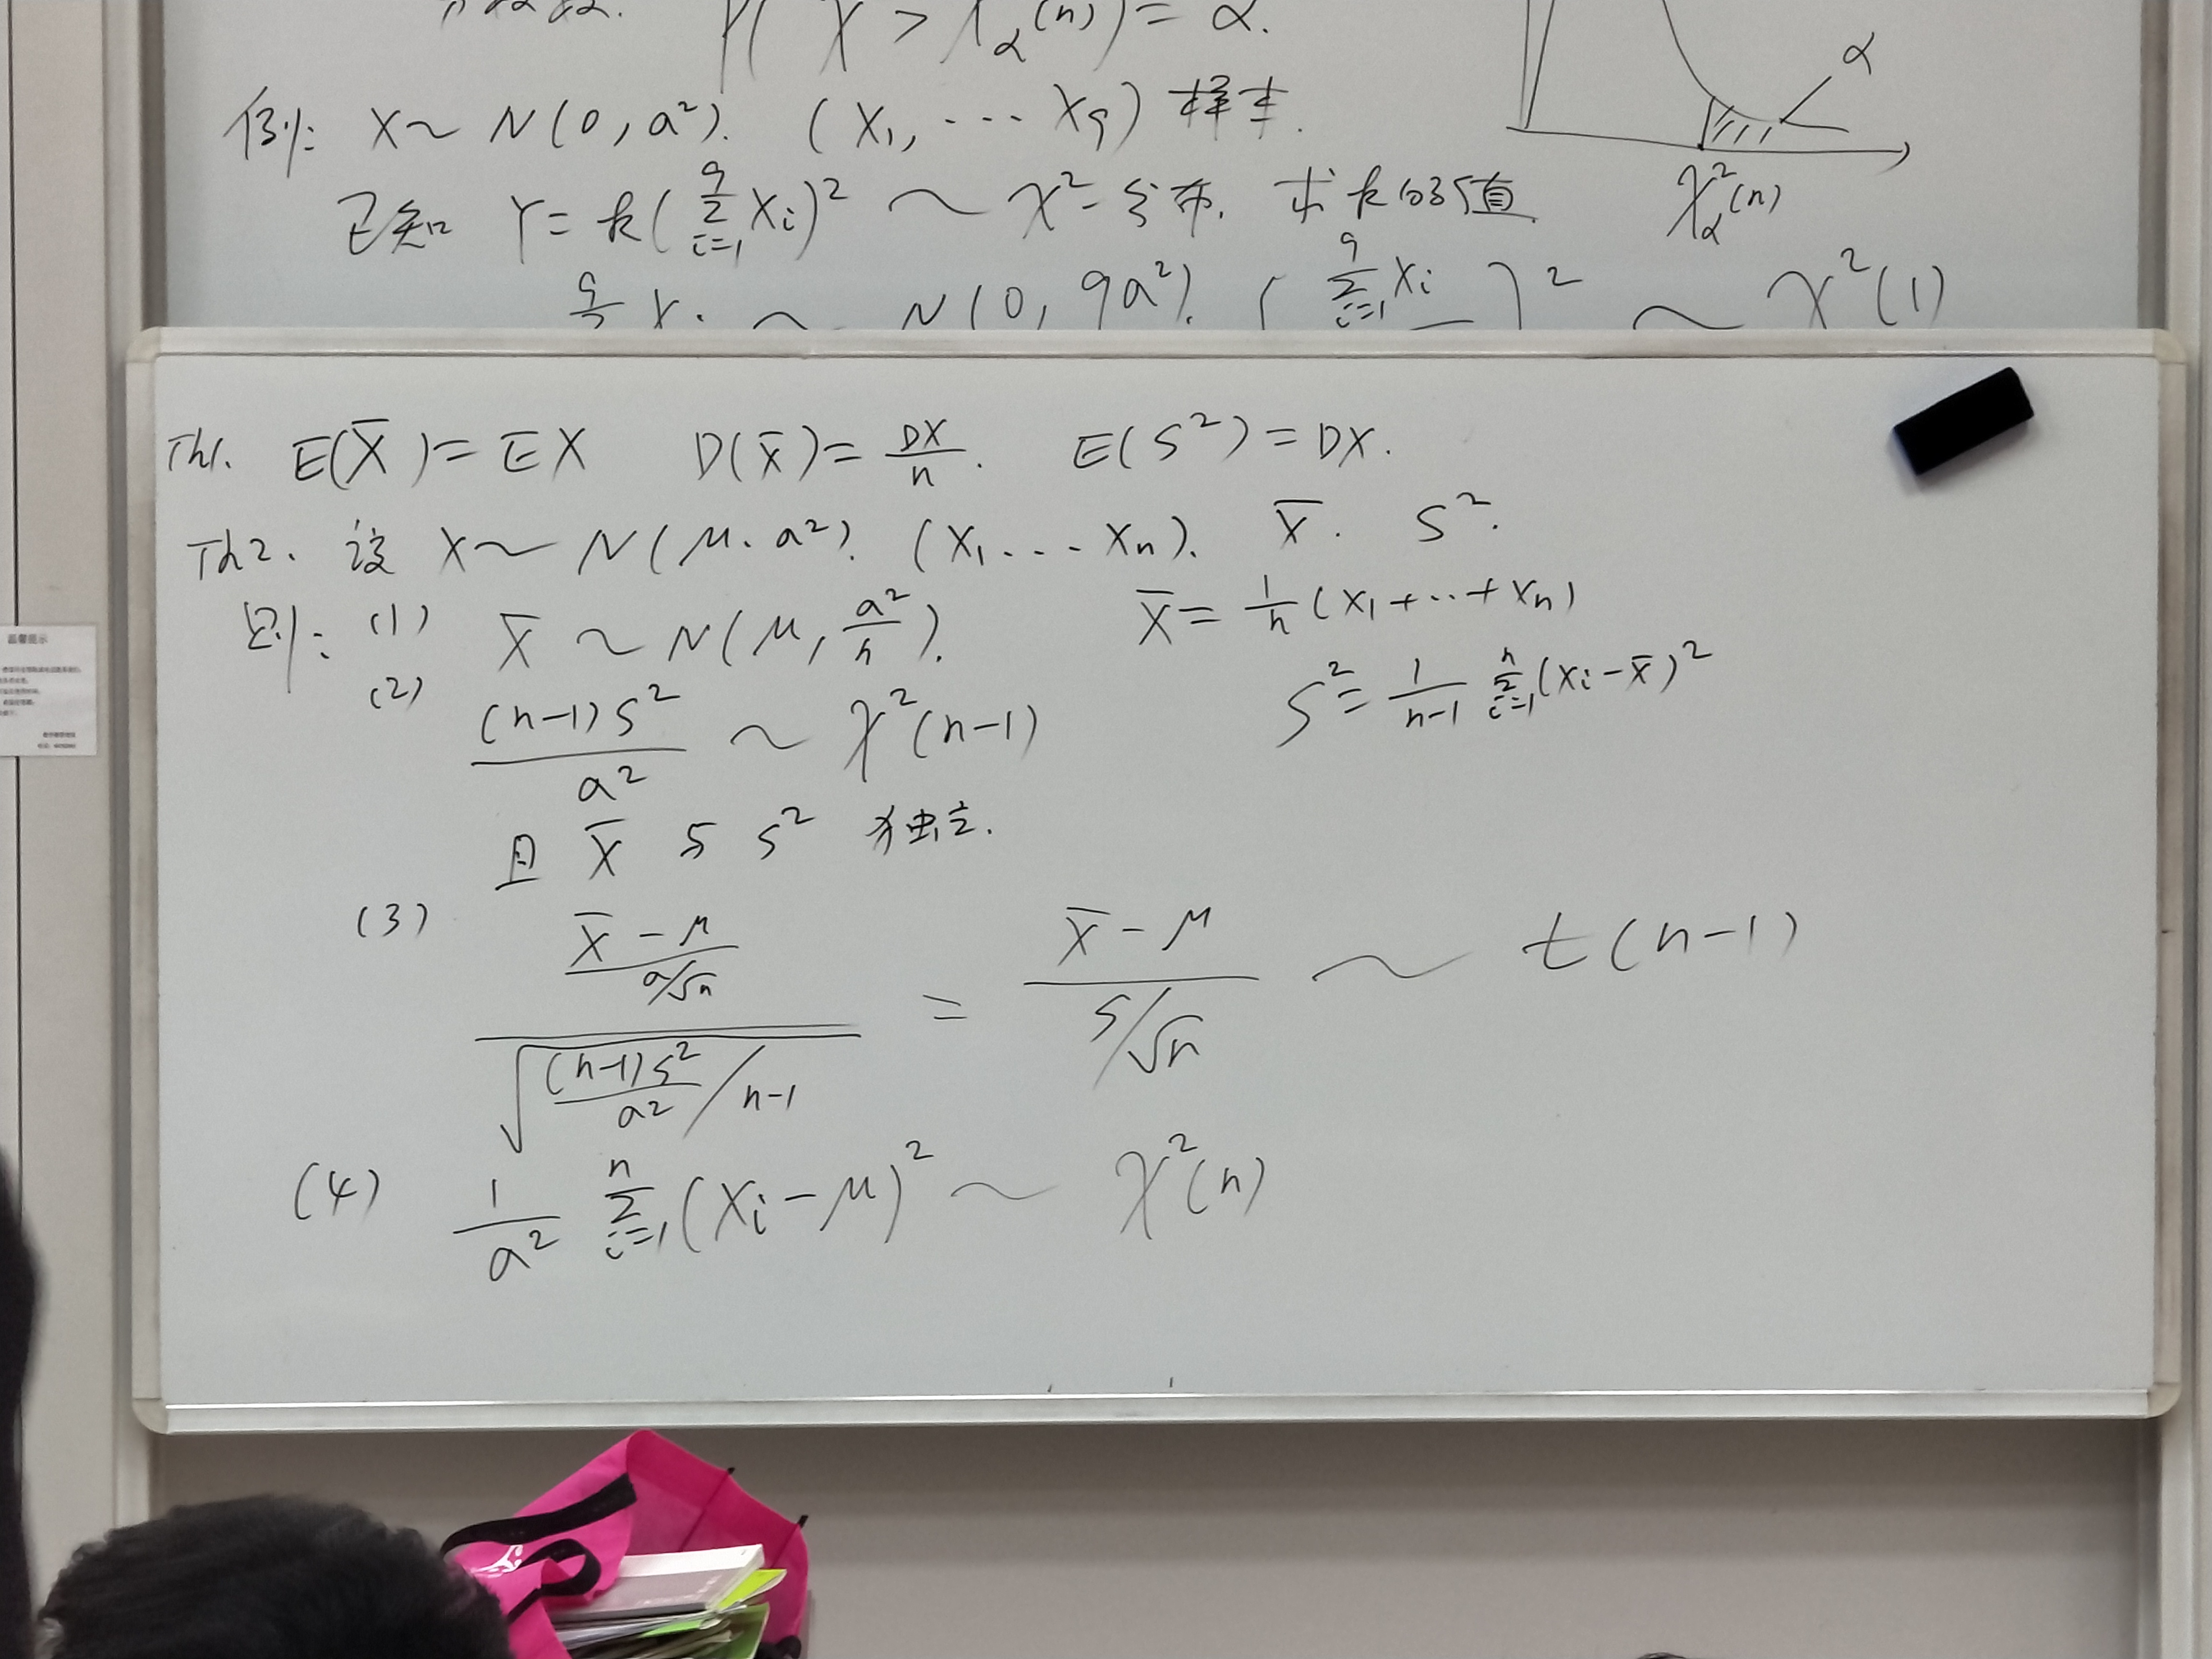 P(χ² > χ²α(n)) = α.
α
例: X ~ N(0, a²). (X₁, ··· X₉) 样本.
已知 Y = k(∑ᵢ₌₁⁹ Xᵢ)² ~ χ²-分布. 求k的值
χ²α(n)
N(0, 9a²). ∑ᵢ₌₁⁹ Xᵢ )² ~ χ²(1)
Th1. E(X̄) = EX D(X̄) = DX/n. E(S²) = DX.
Th2. 设 X ~ N(μ. a²). (X₁ ··· Xₙ). X̄. S².
则: (1) X̄ ~ N(μ, a²/n). X̄ = 1/n (X₁ + ··· + Xₙ)
(2) (n-1)S²/a² ~ χ²(n-1) S² = 1/(n-1) ∑ᵢ₌₁ⁿ (Xᵢ - X̄)²
且 X̄ 与 S² 独立.
(3) ((X̄ - μ)/(a/√n)) / √((n-1)S²/a² / n-1) = (X̄ - μ)/(S/√n) ~ t(n-1)
(4) 1/a² ∑ᵢ₌₁ⁿ (Xᵢ - μ)² ~ χ²(n)
温馨提示